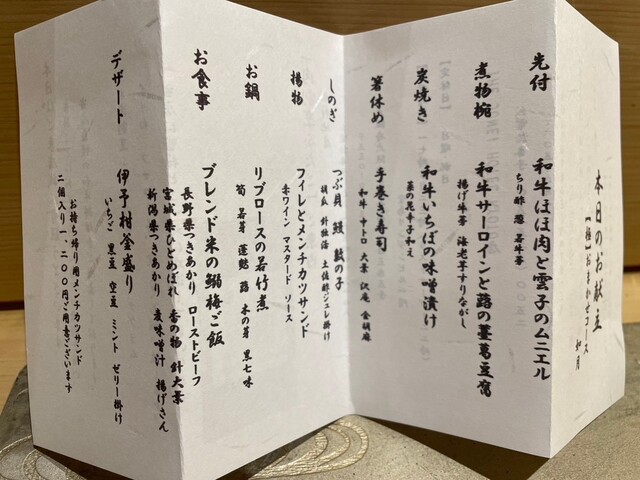 本日のお献立
「極」おまかせコース
如月
先付
和牛ほほ肉と雲子のムニエル
ちり酢 葱 若牛蒡
煮物椀
和牛サーロインと蕗の薹葛豆腐
揚げ牛蒡 海老芋すりながし
炭焼き
和牛いちぼの味噌漬け
菜の花辛子和え
箸休め
手巻き寿司
和牛 中トロ 大葉 沢庵 金胡麻
しのぎ
つぶ貝 鰻 数の子
胡瓜 針独活 土佐酢ジュレ掛け
揚物
フィレとメンチカツサンド
赤ワイン マスタード ソース
お鍋
リブロースの若竹煮
筍 若芽 蓮麩 蕗 木の芽 黒七味
お食事
ブレンド米の鰯梅ご飯
長野県つきあかり ローストビーフ
宮城県ひとめぼれ 香の物 針大葉
新潟県つきあかり 麦味噌汁 揚げさん
デザート
伊予柑釜盛り
いちご 黒豆 空豆 ミント ゼリー掛け
お持ち帰り用メンチカツサンド
二個入り一、二〇〇円ご用意ございます